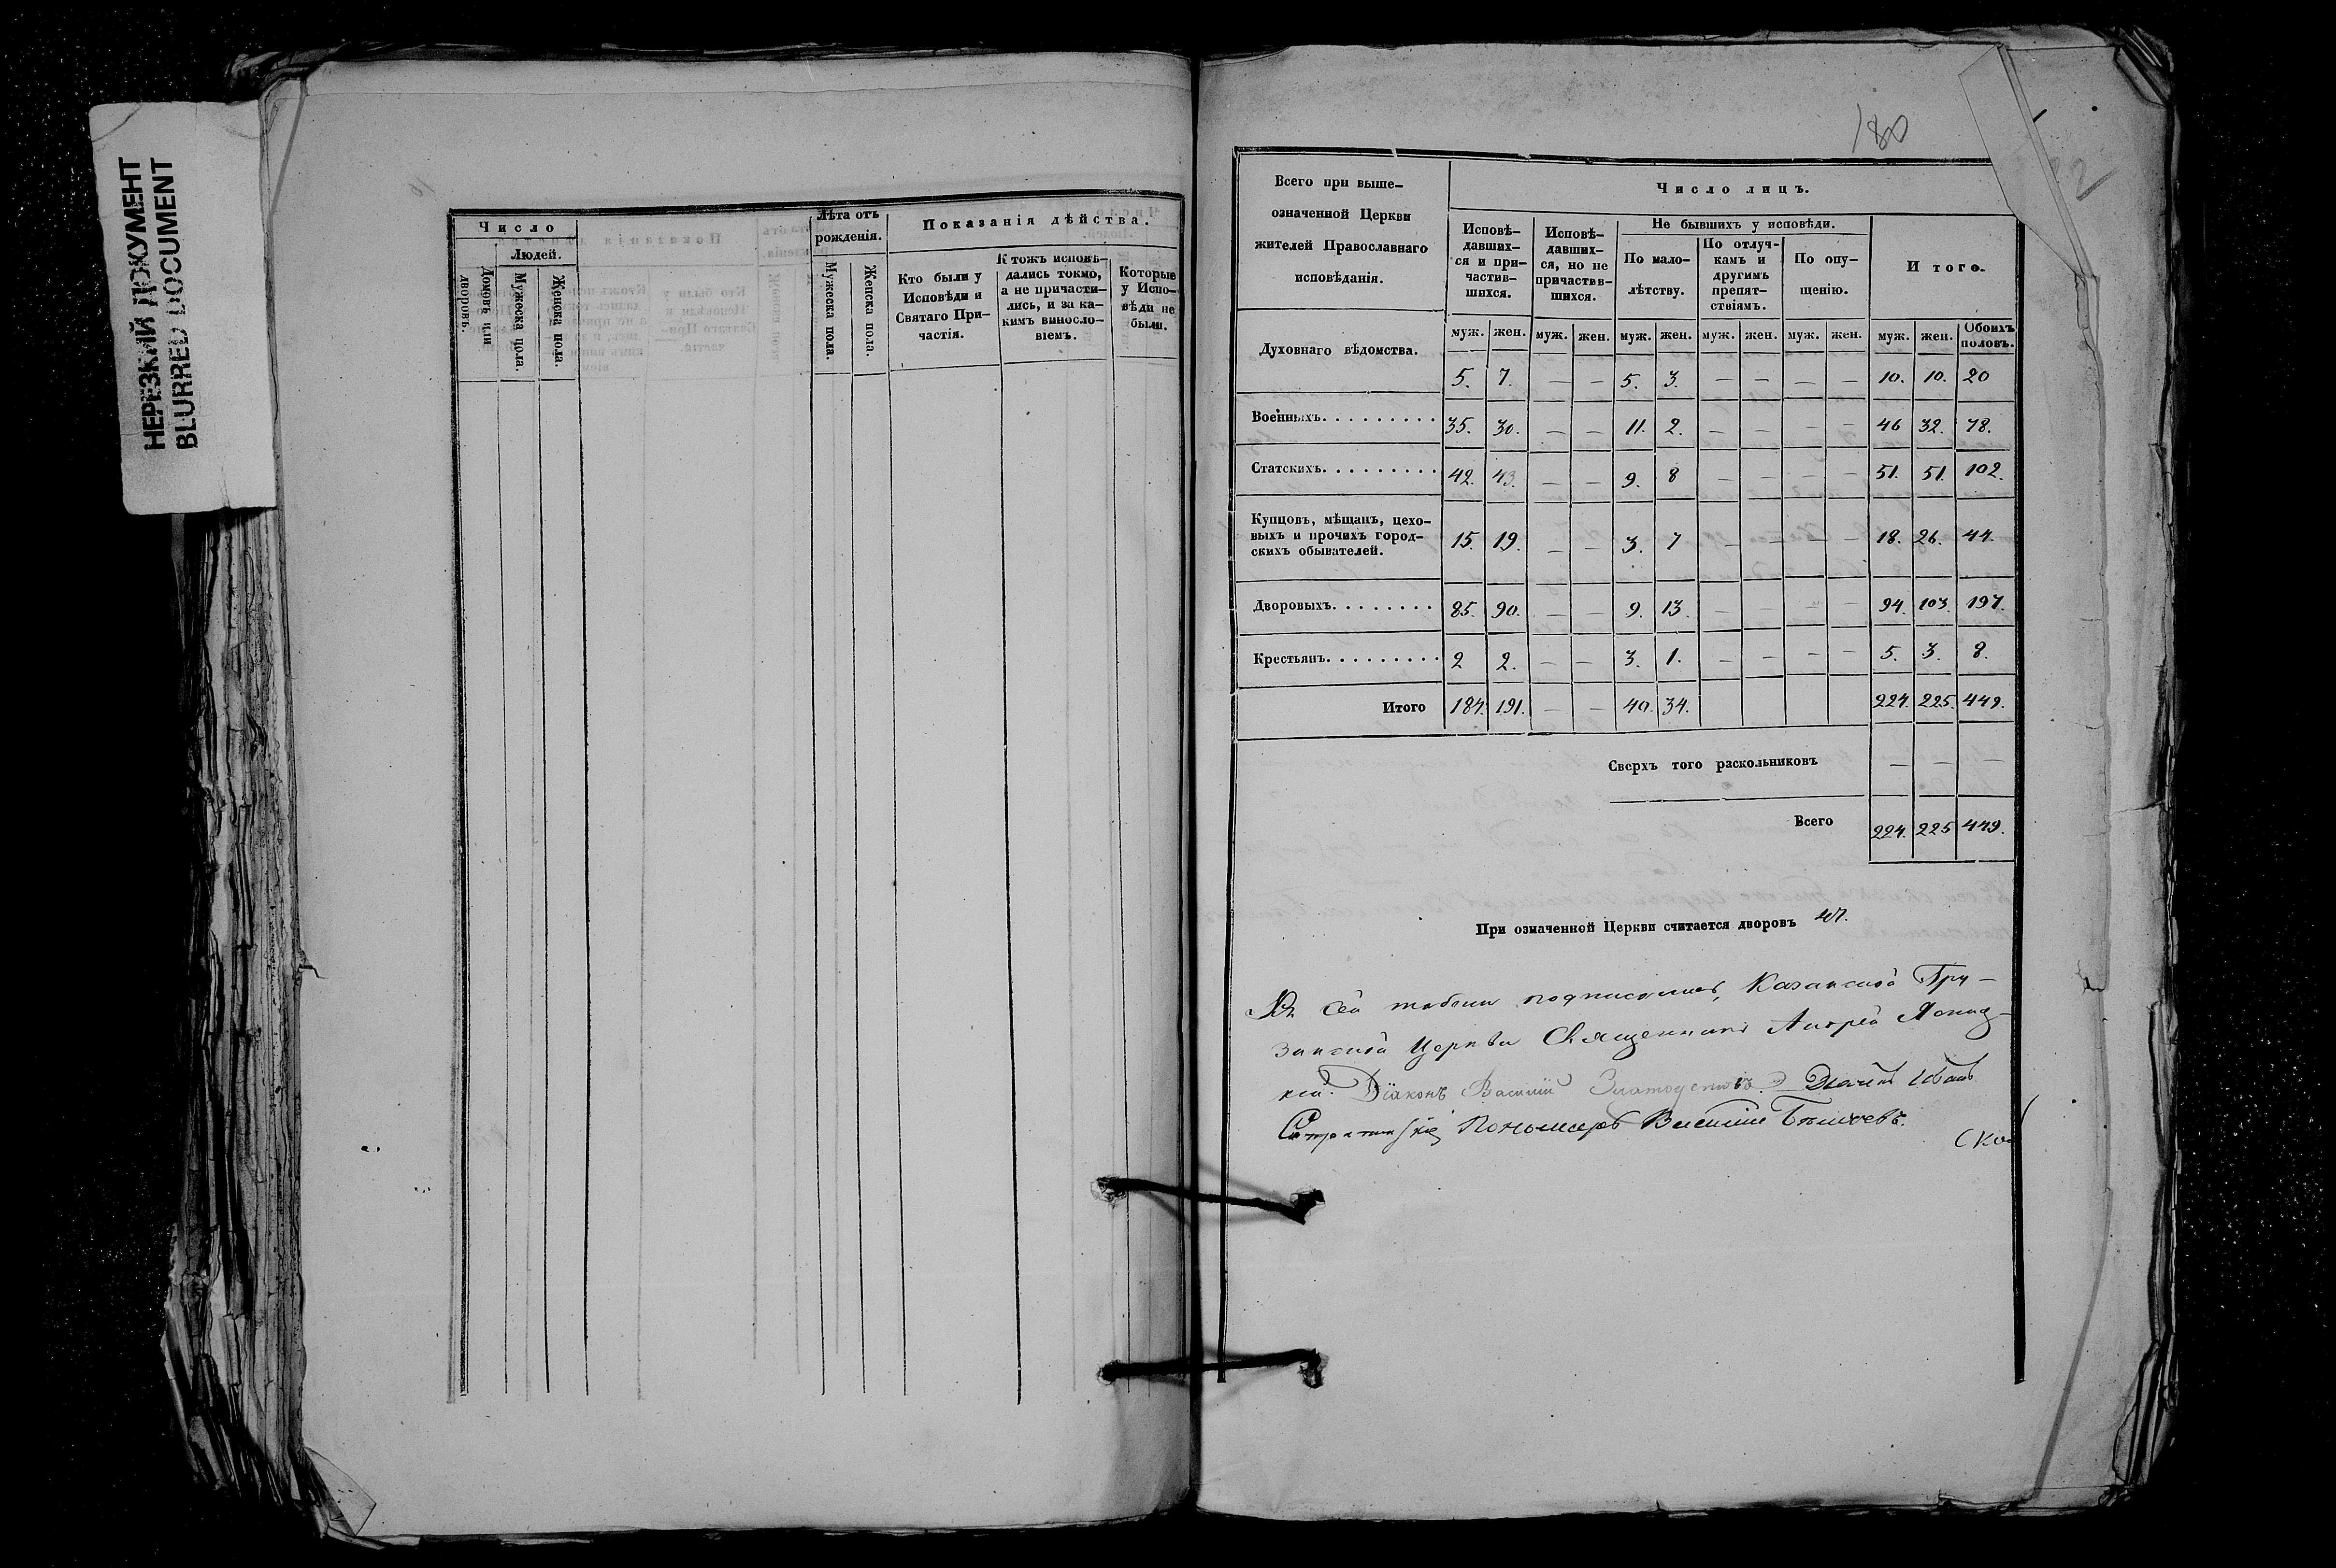 НЕРЕЗКИЙ ДОКУМЕНТ
BLURRED DOCUMENT
Число
Людей.
Домовъ или дворовъ.
Мужеска пола.
Женска пола.
Лѣта отъ рожденія.
Мужеска пола.
Женска пола.
Показанія дѣйства.
Кто были у
Исповѣди и
Святаго При-
частія.
Ктожъ исповѣ-
дались токмо,
а не причасти-
лись, и за ка-
кимъ винословіемъ.
Которые
у Испо-
вѣди не
были.
180
Всего при выше-
означенной Церкви
жителей Православнаго
исповѣданія.
Число лицъ.
Исповѣ-
давших-
ся и при-
частив-
шихся.
Исповѣ-
давших-
ся, но не
причастив-
шихся.
Не бывшихъ у исповѣди.
По мало-
лѣтству.
По отлуч-
камъ и
другимъ
препят-
ствіямъ.
По опу-
щенію.
Итого.
муж. жен. муж. жен. муж. жен. муж. жен. муж. жен. муж. жен. Обоихъ половъ.
Духовнаго вѣдомства. 5. 7. — — 5. 3. — — — — 10. 10. 20
Военныхъ. 35. 30. — — 11. 2. — — — — 46 32. 78.
Статскихъ. 42. 43. — — 9. 8 — — — — 51. 51. 102.
Купцовъ, мѣщанъ, цехо-
выхъ и прочихъ город-
скихъ обывателей. 15. 19. — — 3. 7 — — — — 18. 26. 44.
Дворовыхъ. 85. 90. — — 9. 13. — — — — 94. 103. 197.
Крестьянъ. 2 2. — — 3. 1. — — — — 5. 3. 8.
Итого 184. 191. — — 40. 34. 224. 225. 449.
Сверхъ того раскольниковъ — — —
Всего 224. 225 449.
При означенной Церкви считается дворовъ
Къ сей табели подписались, Казанской Гру-
зинской Церкви Священникъ Андрей
Діаконъ Василій Дьячекъ Иванъ
Пономарь Василій